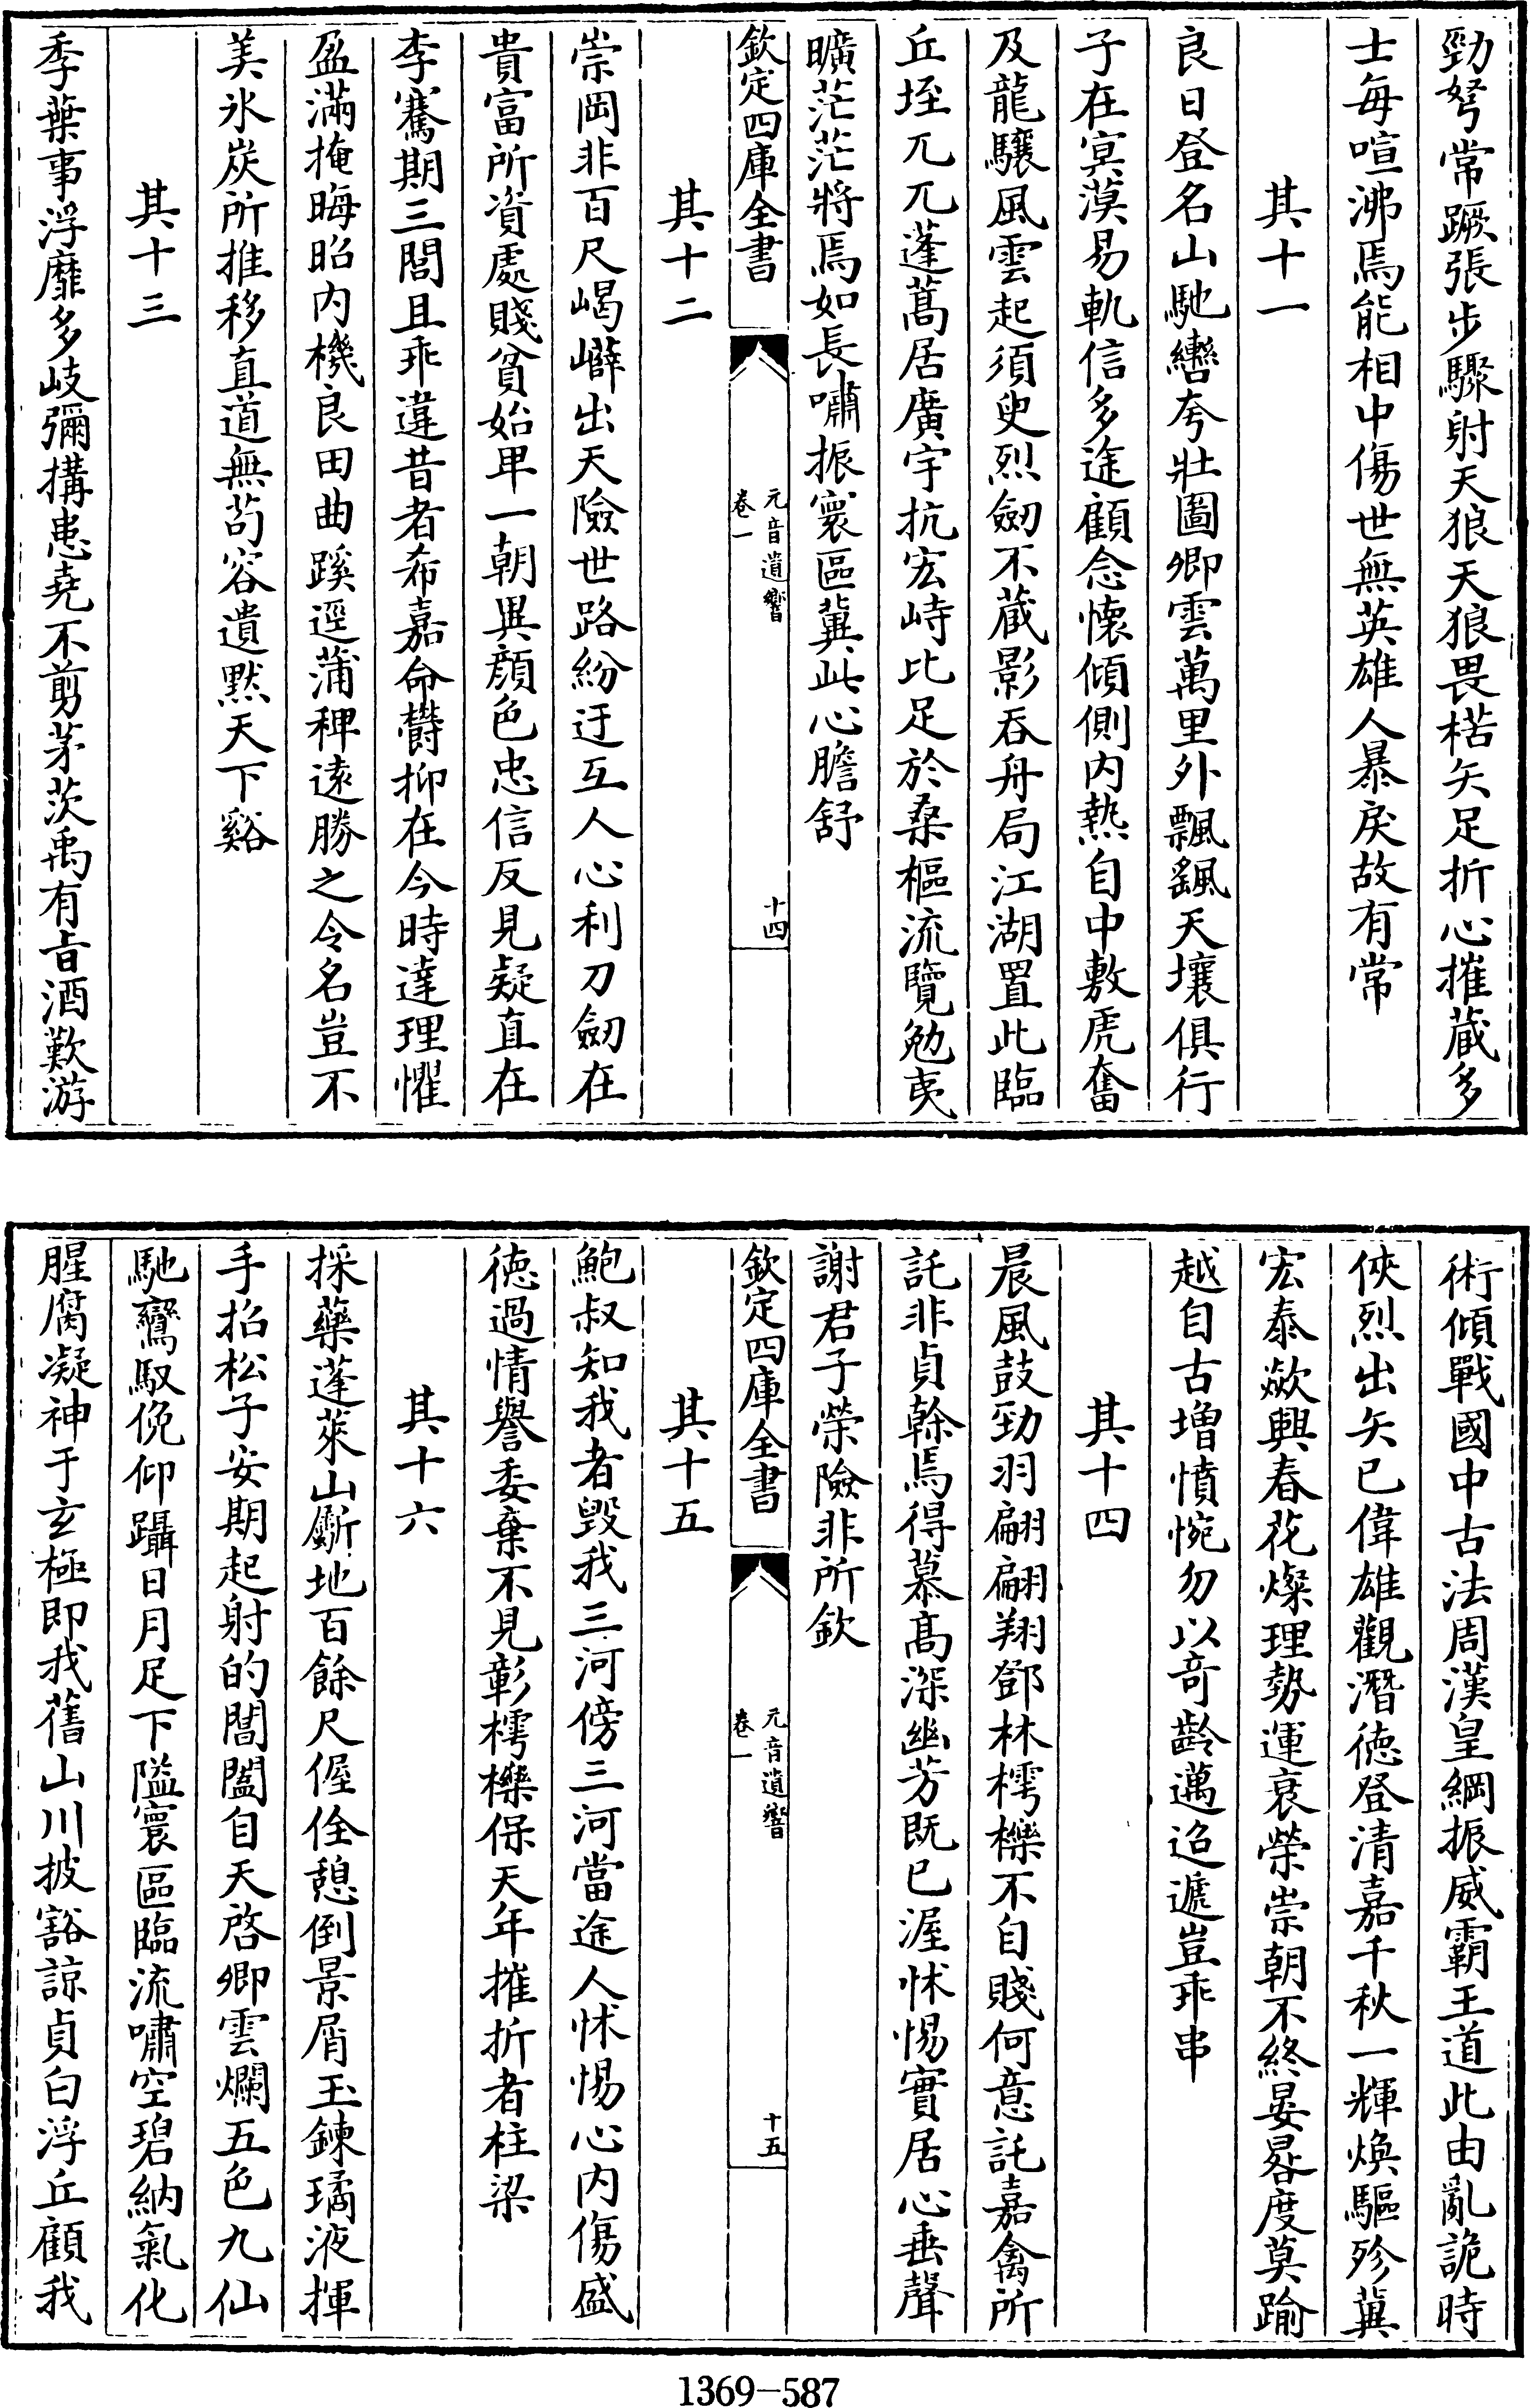 勁弩常蹶張步驟射天狼天狼畏楛矢足折心摧藏多
士每喧沸焉能相中傷世無英雄人暴戾故有常
其十一
良日登名山馳轡夸壯圖卿雲萬里外飄颻天壤俱行
子在冥漠易軌信多途顧念懷傾側内熱自中敷虎奮
及龍驤風雲起須臾烈劒不蔵影吞舟局江湖置此臨
丘垤兀兀蓬蒿居廣宇抗宏峙比足於桑樞流覽勉夷
曠茫茫將焉如長嘯振寰區冀此心膽舒
欽定四庫全書
元音遺響
卷一
十四
其十二
崇岡非百尺嵑㠔出天險世路紛迂互人心利刀劒在
貴富所資處賤貧始卑一朝異顔色忠信反見疑直在
李騫期三閭且乖違昔者希嘉命欝抑在今時達理懼
盈滿掩晦昭内機良田曲蹊逕蒲稗遠勝之令名豈不
美氷炭所推移直道無苟容遺黙天下谿
其十三
季葉事浮靡多岐彌搆患堯不剪茅茨禹有旨酒歎游
術傾戰國中古法周漢皇綱振威霸王道此由亂詭時
俠烈出矢已偉雄觀潛徳登清嘉千秋一輝煥驅殄冀
宏泰歘興春花燦理勢運衰榮崇朝不終晏晷度莫踰
越自古増憤惋勿以竒齡邁迢遞豈乖串
其十四
晨風鼓勁羽翩翩翔鄧林樗櫟不自賤何意託嘉禽所
託非貞榦焉得慕髙深幽芳既已渥怵惕實居心垂聲
謝君子榮險非所欽
欽定四庫全書
元音遺響
卷一
十五
其十五
鮑叔知我者毀我三河傍三河當途人怵惕心内傷盛
徳過情譽委棄不見彰樗櫟保天年摧折者柱梁
其十六
採藥蓬萊山斸地百餘尺偓佺憩倒景屑玉鍊璚液揮
手招松子安期起射的閶闔自天啓卿雲爛五色九仙
馳鸞馭俛仰躡日月足下隘寰區臨流嘯空碧納氣化
腥腐凝神于玄極即我舊山川披豁諒貞白浮丘顧我
1369—587